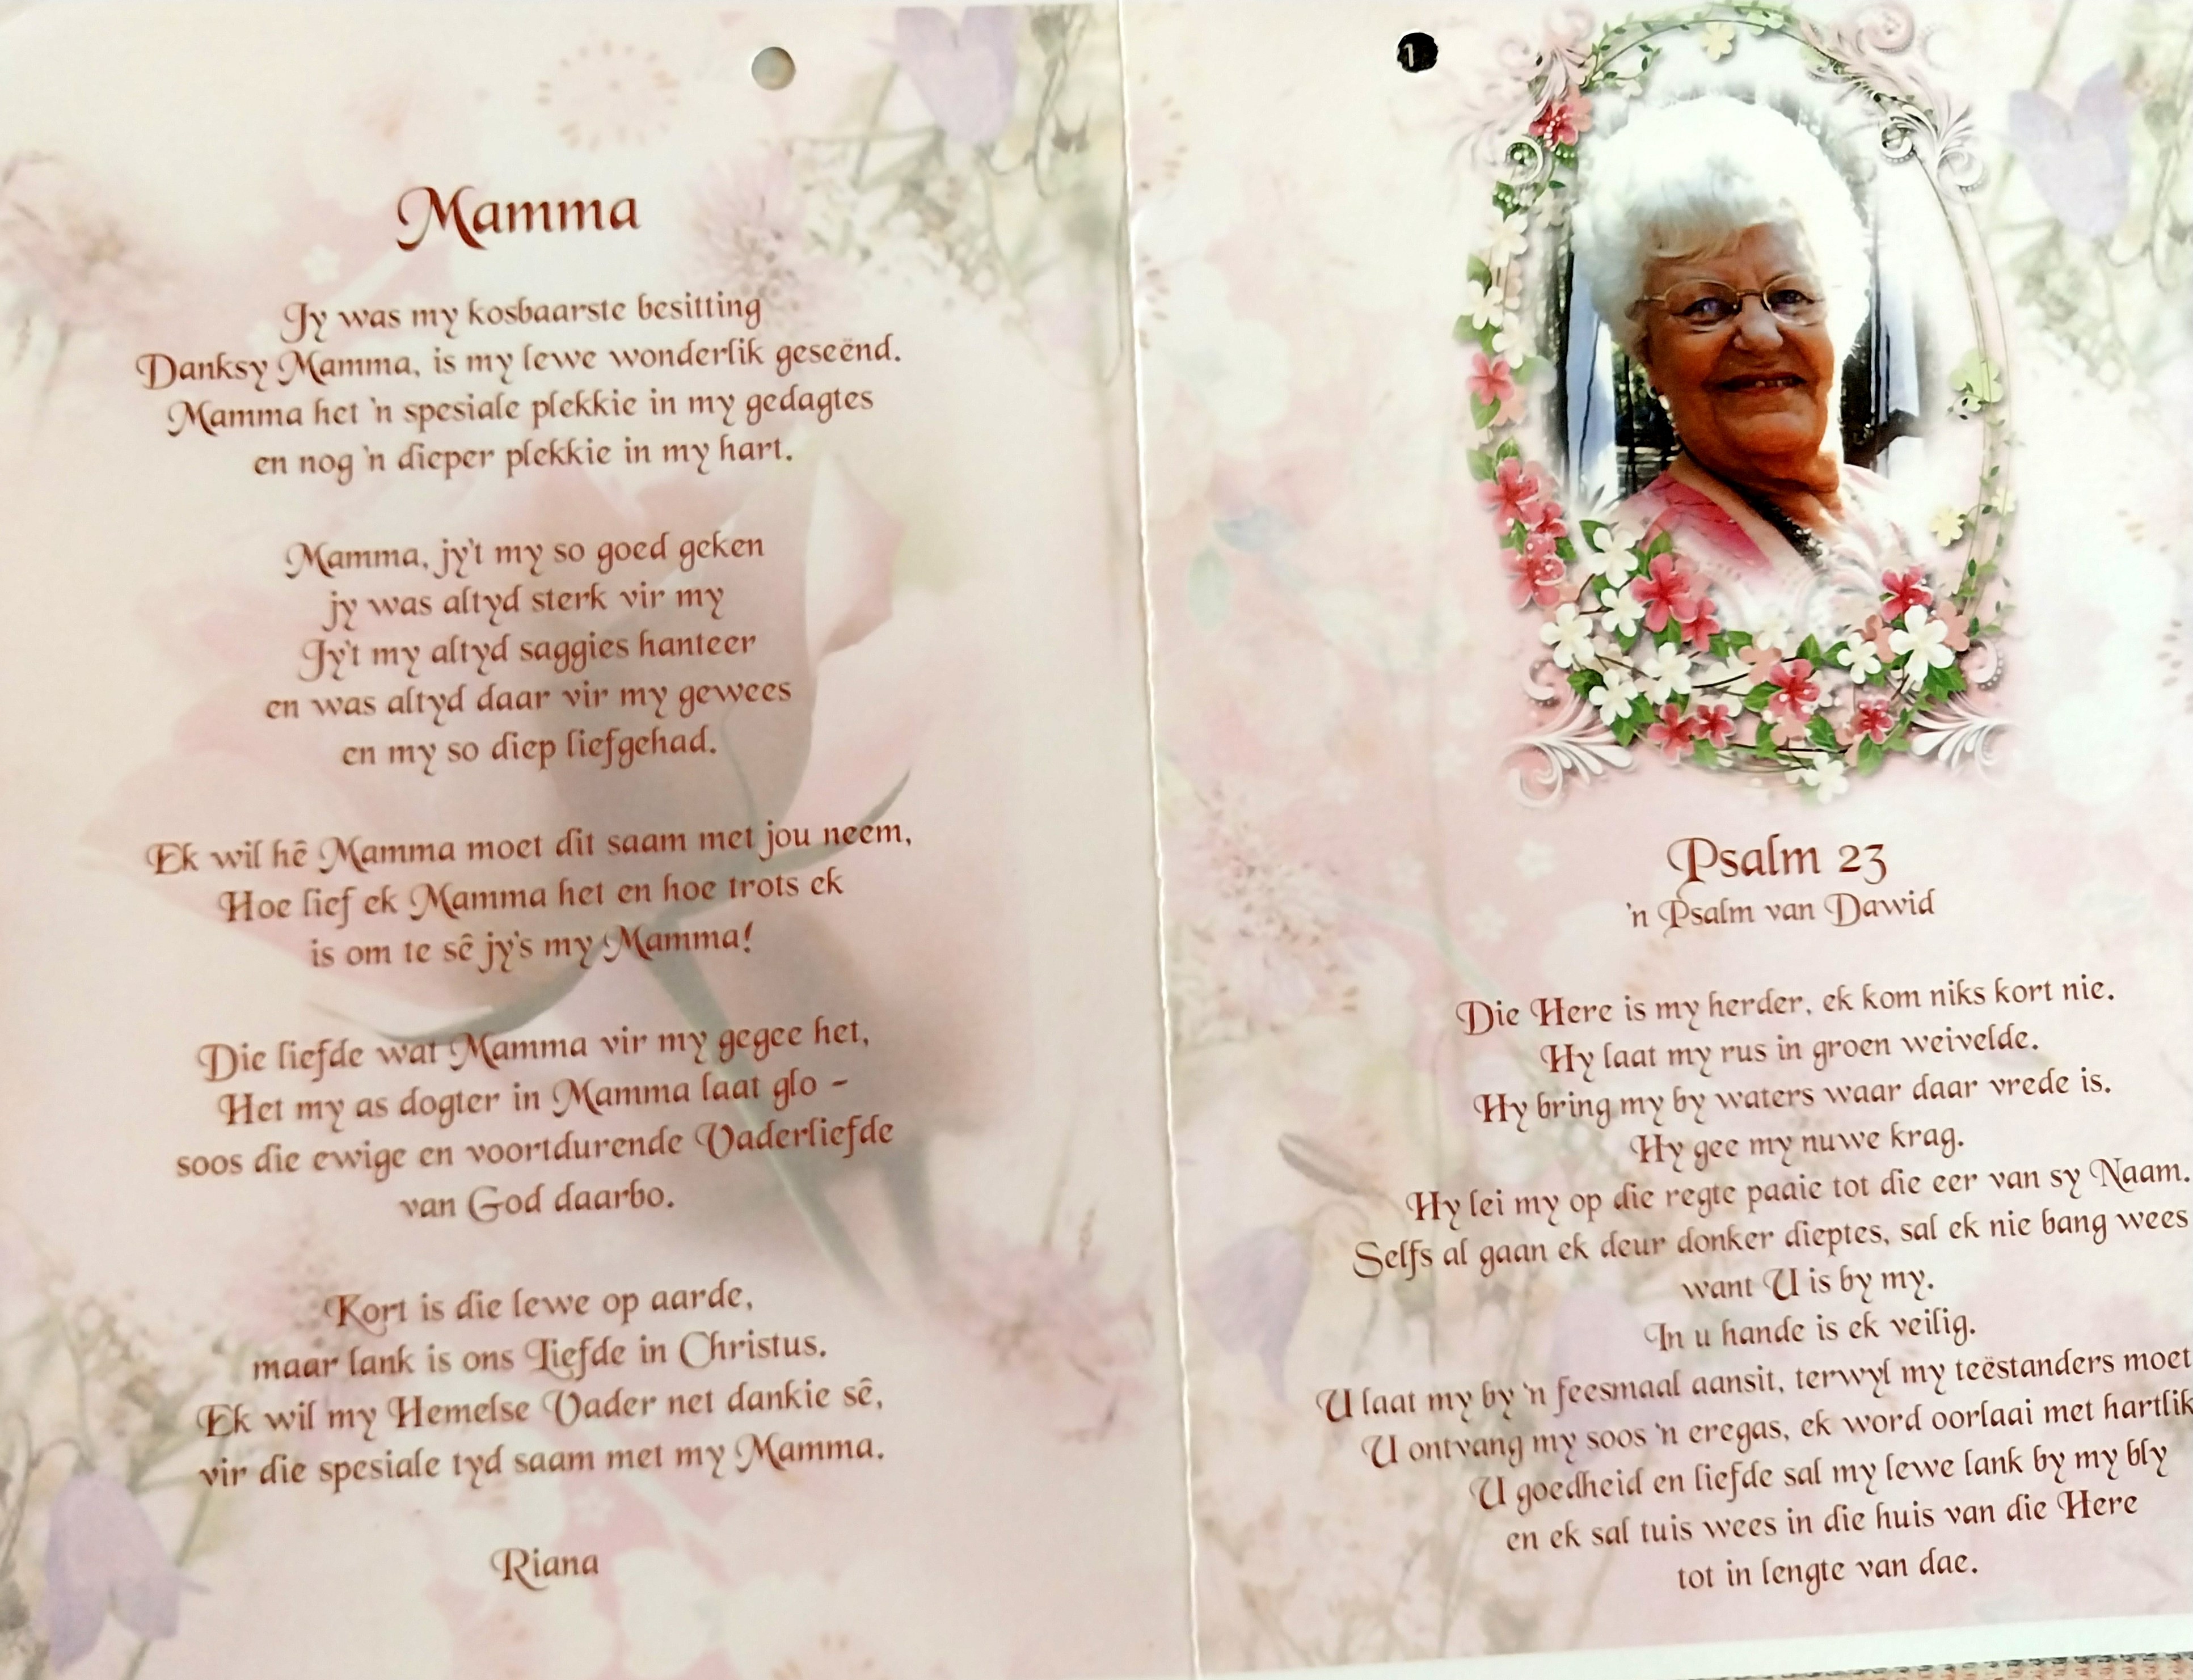 Mamma
Jy was my kosbaarste besitting
Danksy Mamma, is my lewe wonderlik geseënd.
Mamma het 'n spesiale plekkie in my gedagtes
en nog 'n dieper plekkie in my hart.
Mamma, jy't my so goed geken
jy was altyd sterk vir my
Jy't my altyd saggies hanteer
en was altyd daar vir my gewees
en my so diep liefgehad.
Ek wil hê Mamma moet dit saam met jou neem,
Hoe lief ek Mamma het en hoe trots ek
is om te sê jy's my Mamma!
Die liefde wat Mamma vir my gegee het,
Het my as dogter in Mamma laat glo –
soos die ewige en voortdurende Vaderliefde
van God daarbo.
Kort is die lewe op aarde,
maar lank is ons Liefde in Christus.
Ek wil my Hemelse Vader net dankie sê,
vir die spesiale tyd saam met my Mamma.
Riana
1
Psalm 23
'n Psalm van Dawid
Die Here is my herder, ek kom niks kort nie.
Hy laat my rus in groen weivelde.
Hy bring my by waters waar daar vrede is.
Hy gee my nuwe krag.
Hy lei my op die regte paaie tot die eer van sy Naam.
Selfs al gaan ek deur donker dieptes, sal ek nie bang wees
want U is by my.
In u hande is ek veilig.
U laat my by 'n feesmaal aansit, terwyl my teëstanders moet
U ontvang my soos 'n eregas, ek word oorlaai met hartlik
U goedheid en liefde sal my lewe lank by my bly
en ek sal tuis wees in die huis van die Here
tot in lengte van dae.